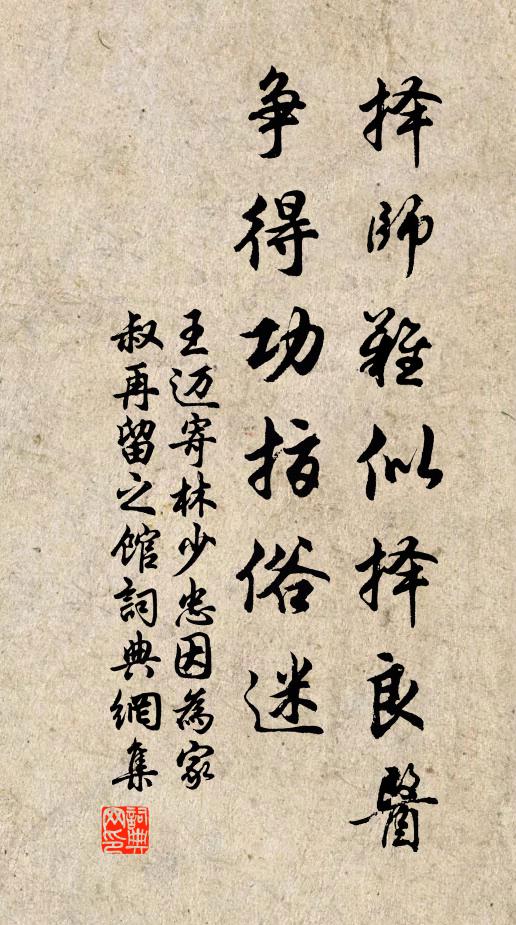 择師難似择良醫
争得功指俗迷
王迈寄林少忠因為家
叔再留之館詞典網集
詞典网印